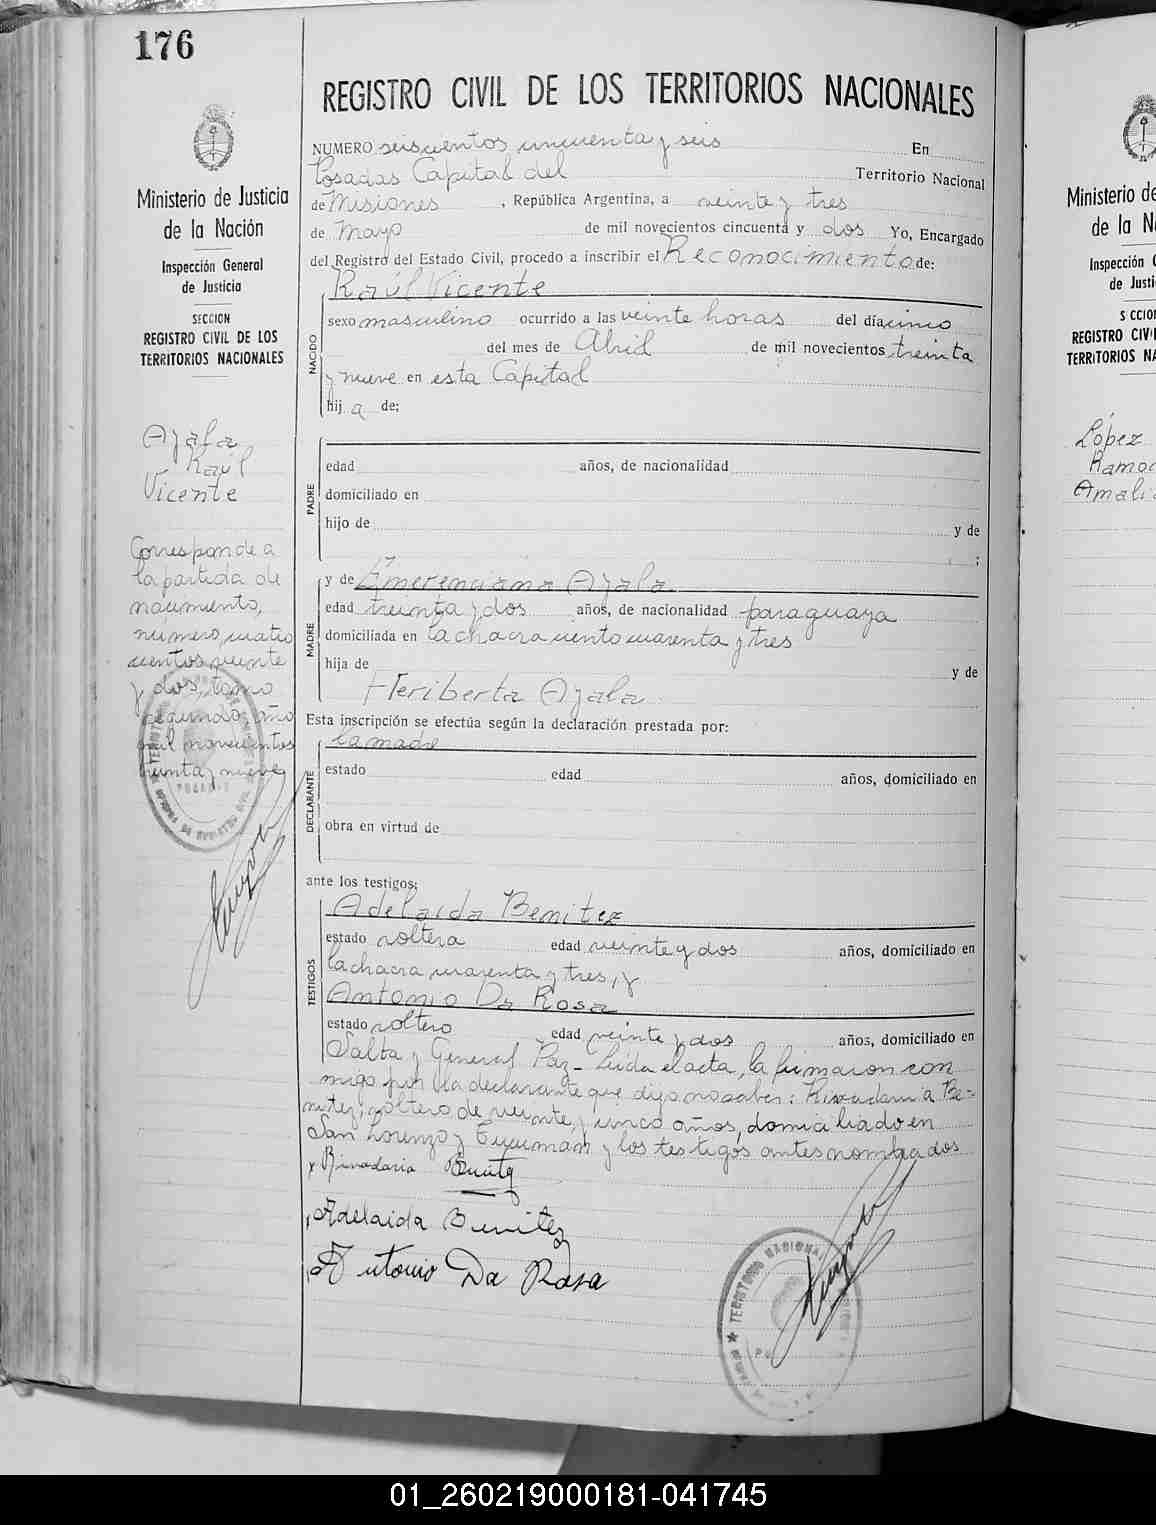 176
REGISTRO CIVIL DE LOS TERRITORIOS NACIONALES
Ministerio de Justicia
de la Nación
Inspección General
de Justicia
SECCION
REGISTRO CIVIL DE LOS
TERRITORIOS NACIONALES
Ayala
Raúl
Vicente
Corresponde a
la partida de
nacimiento,
número cuatro
cientos veinte
y dos, tomo
segundo, año
mil novecientos
treinta y nueve
NUMERO seiscientos cincuenta y seis En
Posadas Capital del Territorio Nacional
de Misiones, República Argentina, a veinte y tres
de Mayo de mil novecientos cincuenta y dos Yo, Encargado
del Registro del Estado Civil, procedo a inscribir el Reconocimiento de:
Raúl Vicente
NACIDO
sexo masculino ocurrido a las veinte horas del día cinco
del mes de Abril de mil novecientos treinta
y nueve en esta Capital
hij a de;
PADRE
edad años, de nacionalidad
domiciliado en
hijo de y de
;
MADRE
y de Emerenciana Ayala
edad treinta y dos años, de nacionalidad paraguaya
domiciliada en la chacra ciento cuarenta y tres
hija de y de
Heriberta Ayala
Esta inscripción se efectúa según la declaración prestada por:
la madre
DECLARANTE
estado edad años, domiciliado en
obra en virtud de
ante los testigos:
TESTIGOS
Adelaida Benitez
estado soltera edad veinte y dos años, domiciliado en
la chacra cuarenta y tres, y
Antonio Da Rosa
estado soltero edad veinte y dos años, domiciliado en
Salta y General Paz - Leída el acta, la firmaron con
migo por la declarante que dijo no saber: Rivadavia Be-
nitez, soltero de veinte y cinco años, domiciliado en
San Lorenzo y Tucuman y los testigos antes nombrados
Rivadavia
Adelaida Benitez
Antonio Da Rosa
TERRITORIO NACIONAL
Ministerio de
de la N
Inspección
de Justi
REGISTRO CIV
TERRITORIOS NA
López
Ramo
Amali
01_260219000181-041745